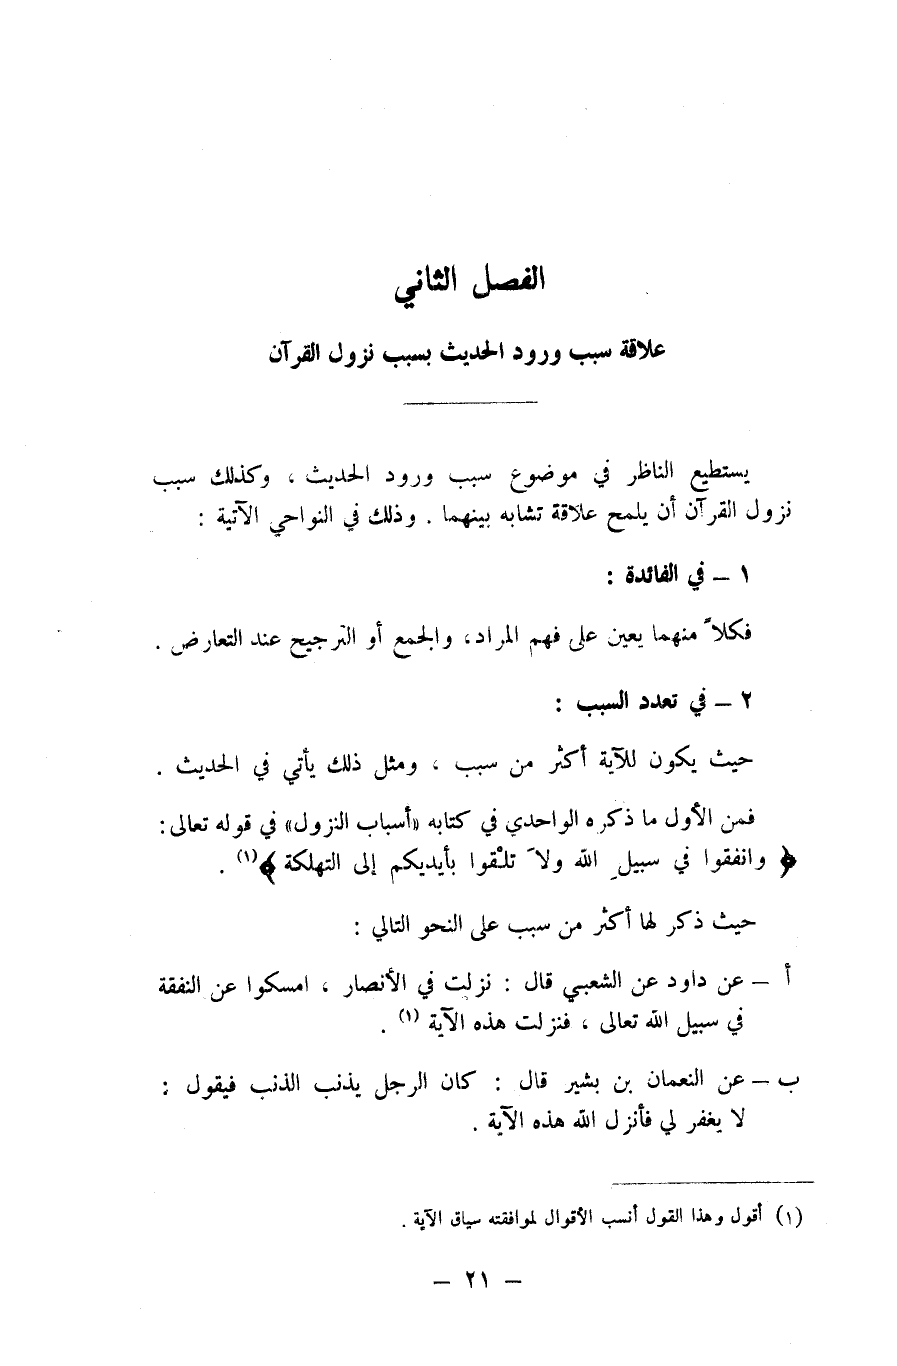 الفصل الثاني
علاقة سبب ورود الحديث بسبب نزول القرآن
يستطيع الناظر في موضوع سبب ورود الحديث ، وكذلك سبب
نزول القرآن أن يلمح علاقة تشابه بينهما . وذلك في النواحي الآتية :
١ – في الفائدة :
فكلاً منهما يعين على فهم المراد، والجمع أو الترجيح عند التعارض .
٢ – في تعدد السبب :
حيث يكون للآية أكثر من سبب ، ومثل ذلك يأتي في الحديث .
فمن الأول ما ذكره الواحدي في كتابه «أسباب النزول» في قوله تعالى:
﴿ وانفقوا في سبيلِ الله ولاَ تلْقوا بأيديكم إلى التهلكة ﴾(١) .
حيث ذكر لها أكثر من سبب على النحو التالي :
أ – عن داود عن الشعبي قال : نزلت في الأنصار ، امسكوا عن النفقة
في سبيل الله تعالى ، فنزلت هذه الآية (١) .
ب – عن النعمان بن بشير قال : كان الرجل يذنب الذنب فيقول :
لا يغفر لي فأنزل الله هذه الآية .
(١) أقول وهذا القول أنسب الأقوال لموافقته سياق الآية .
– ٢١ –